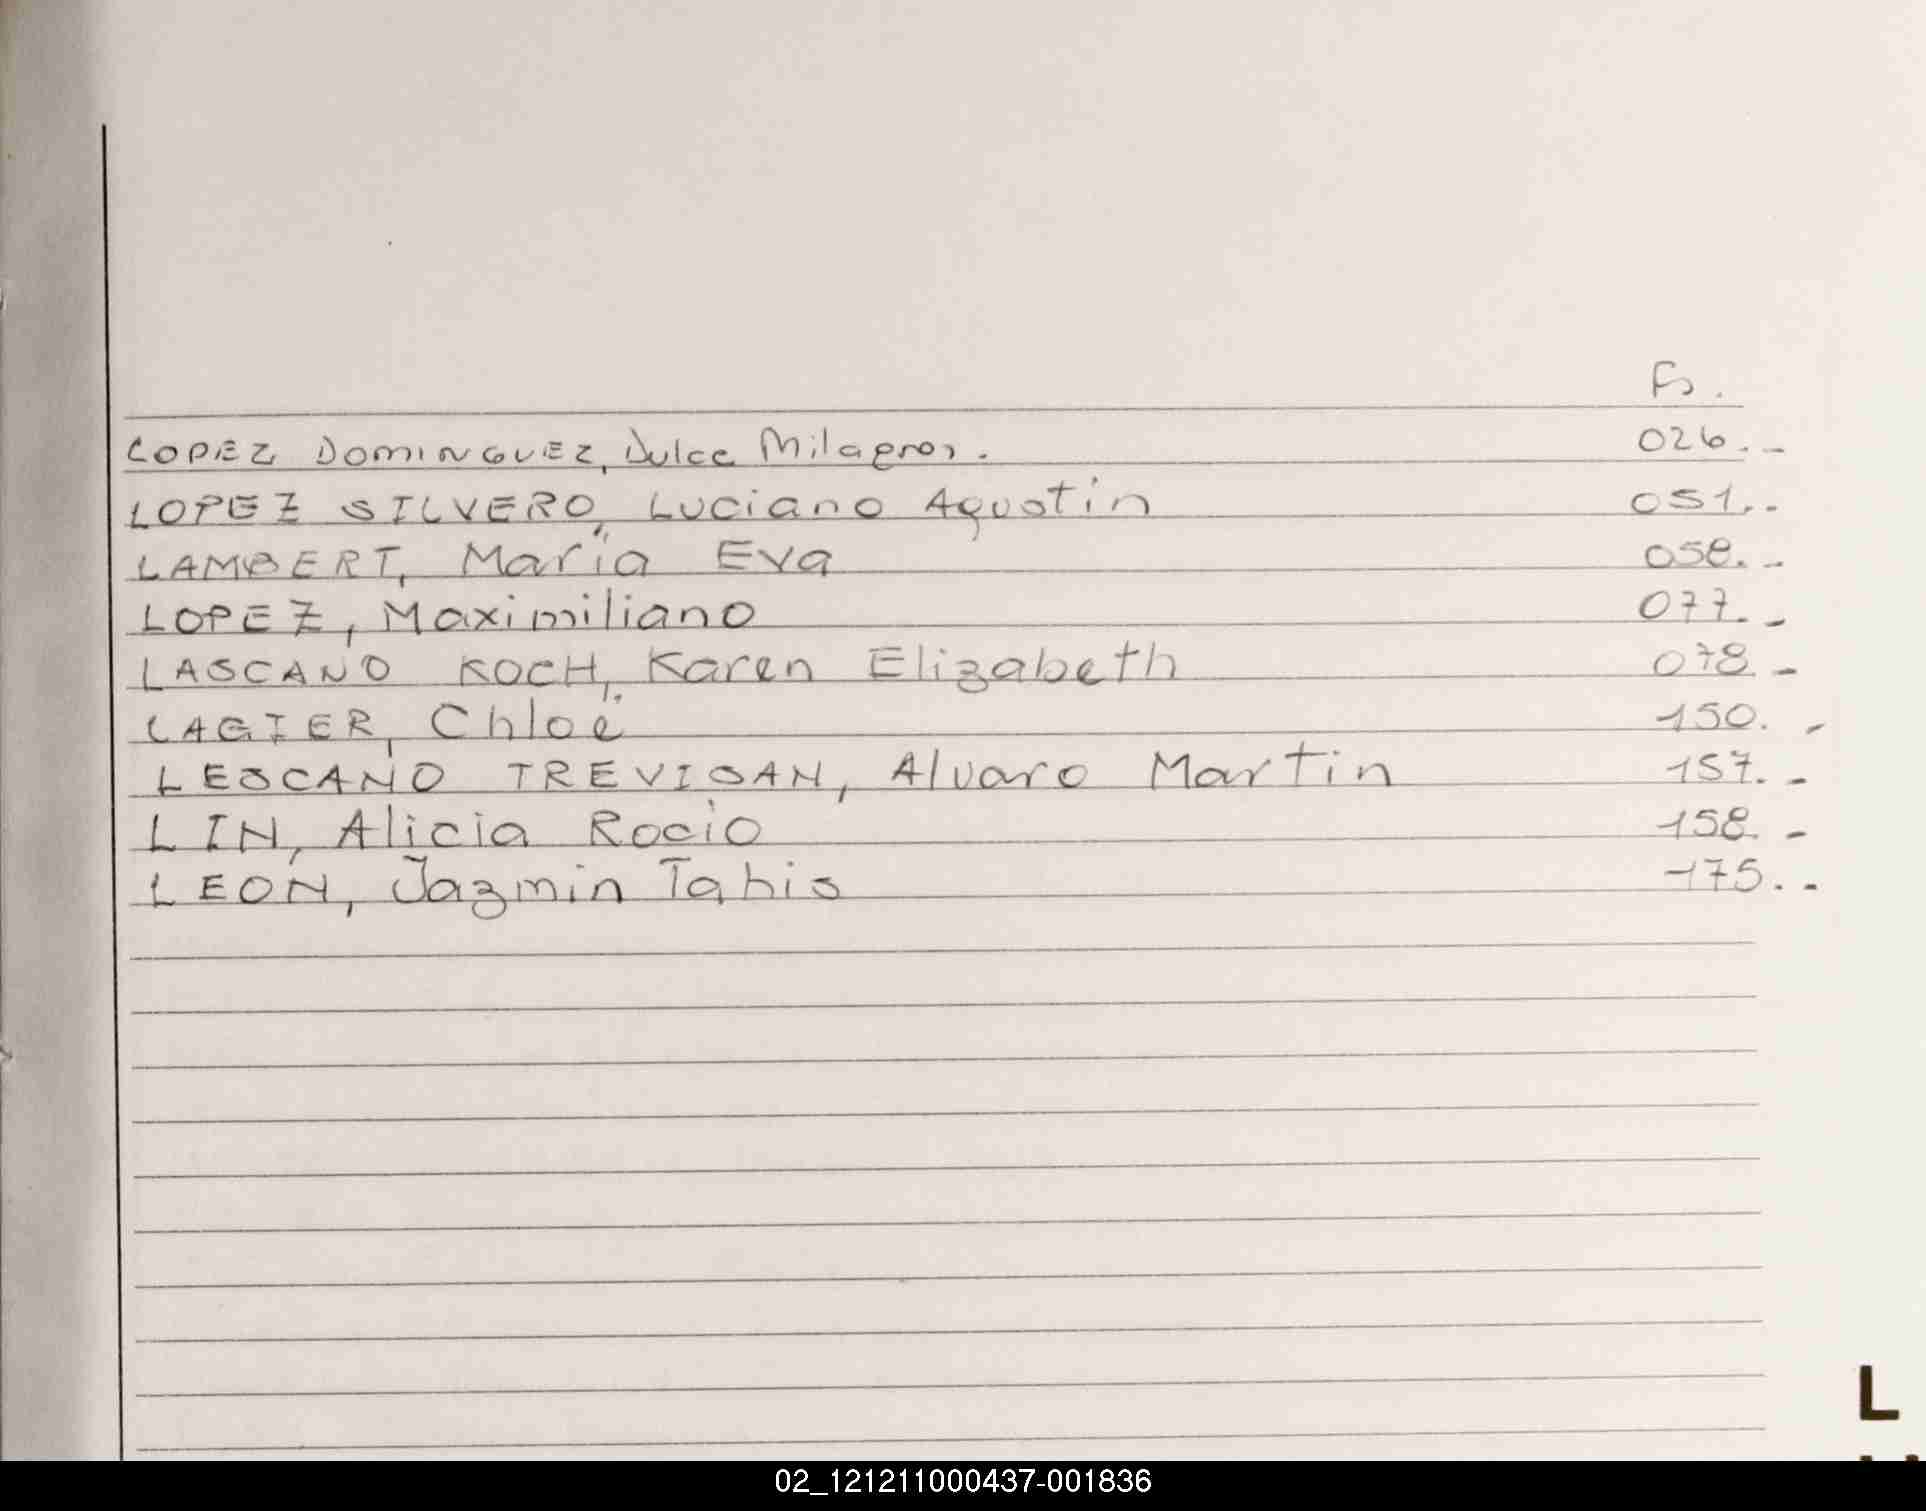 Fs.
LOPEZ DOMINGUEZ, Dulce Milagros. 026.-
LOPEZ SILVERO, Luciano Agustin 051.-
LAMBERT, María Eva 058.-
LOPEZ, Maximiliano 077.-
LASCANO KOCH, Karen Elizabeth 078.-
LAGIER, Chloë 150.-
LESCANO TREVISAN, Alvaro Martin 157.-
LIN, Alicia Rocío 158.-
LEON, Jazmin Tahis 175.-
L
02_121211000437-001836